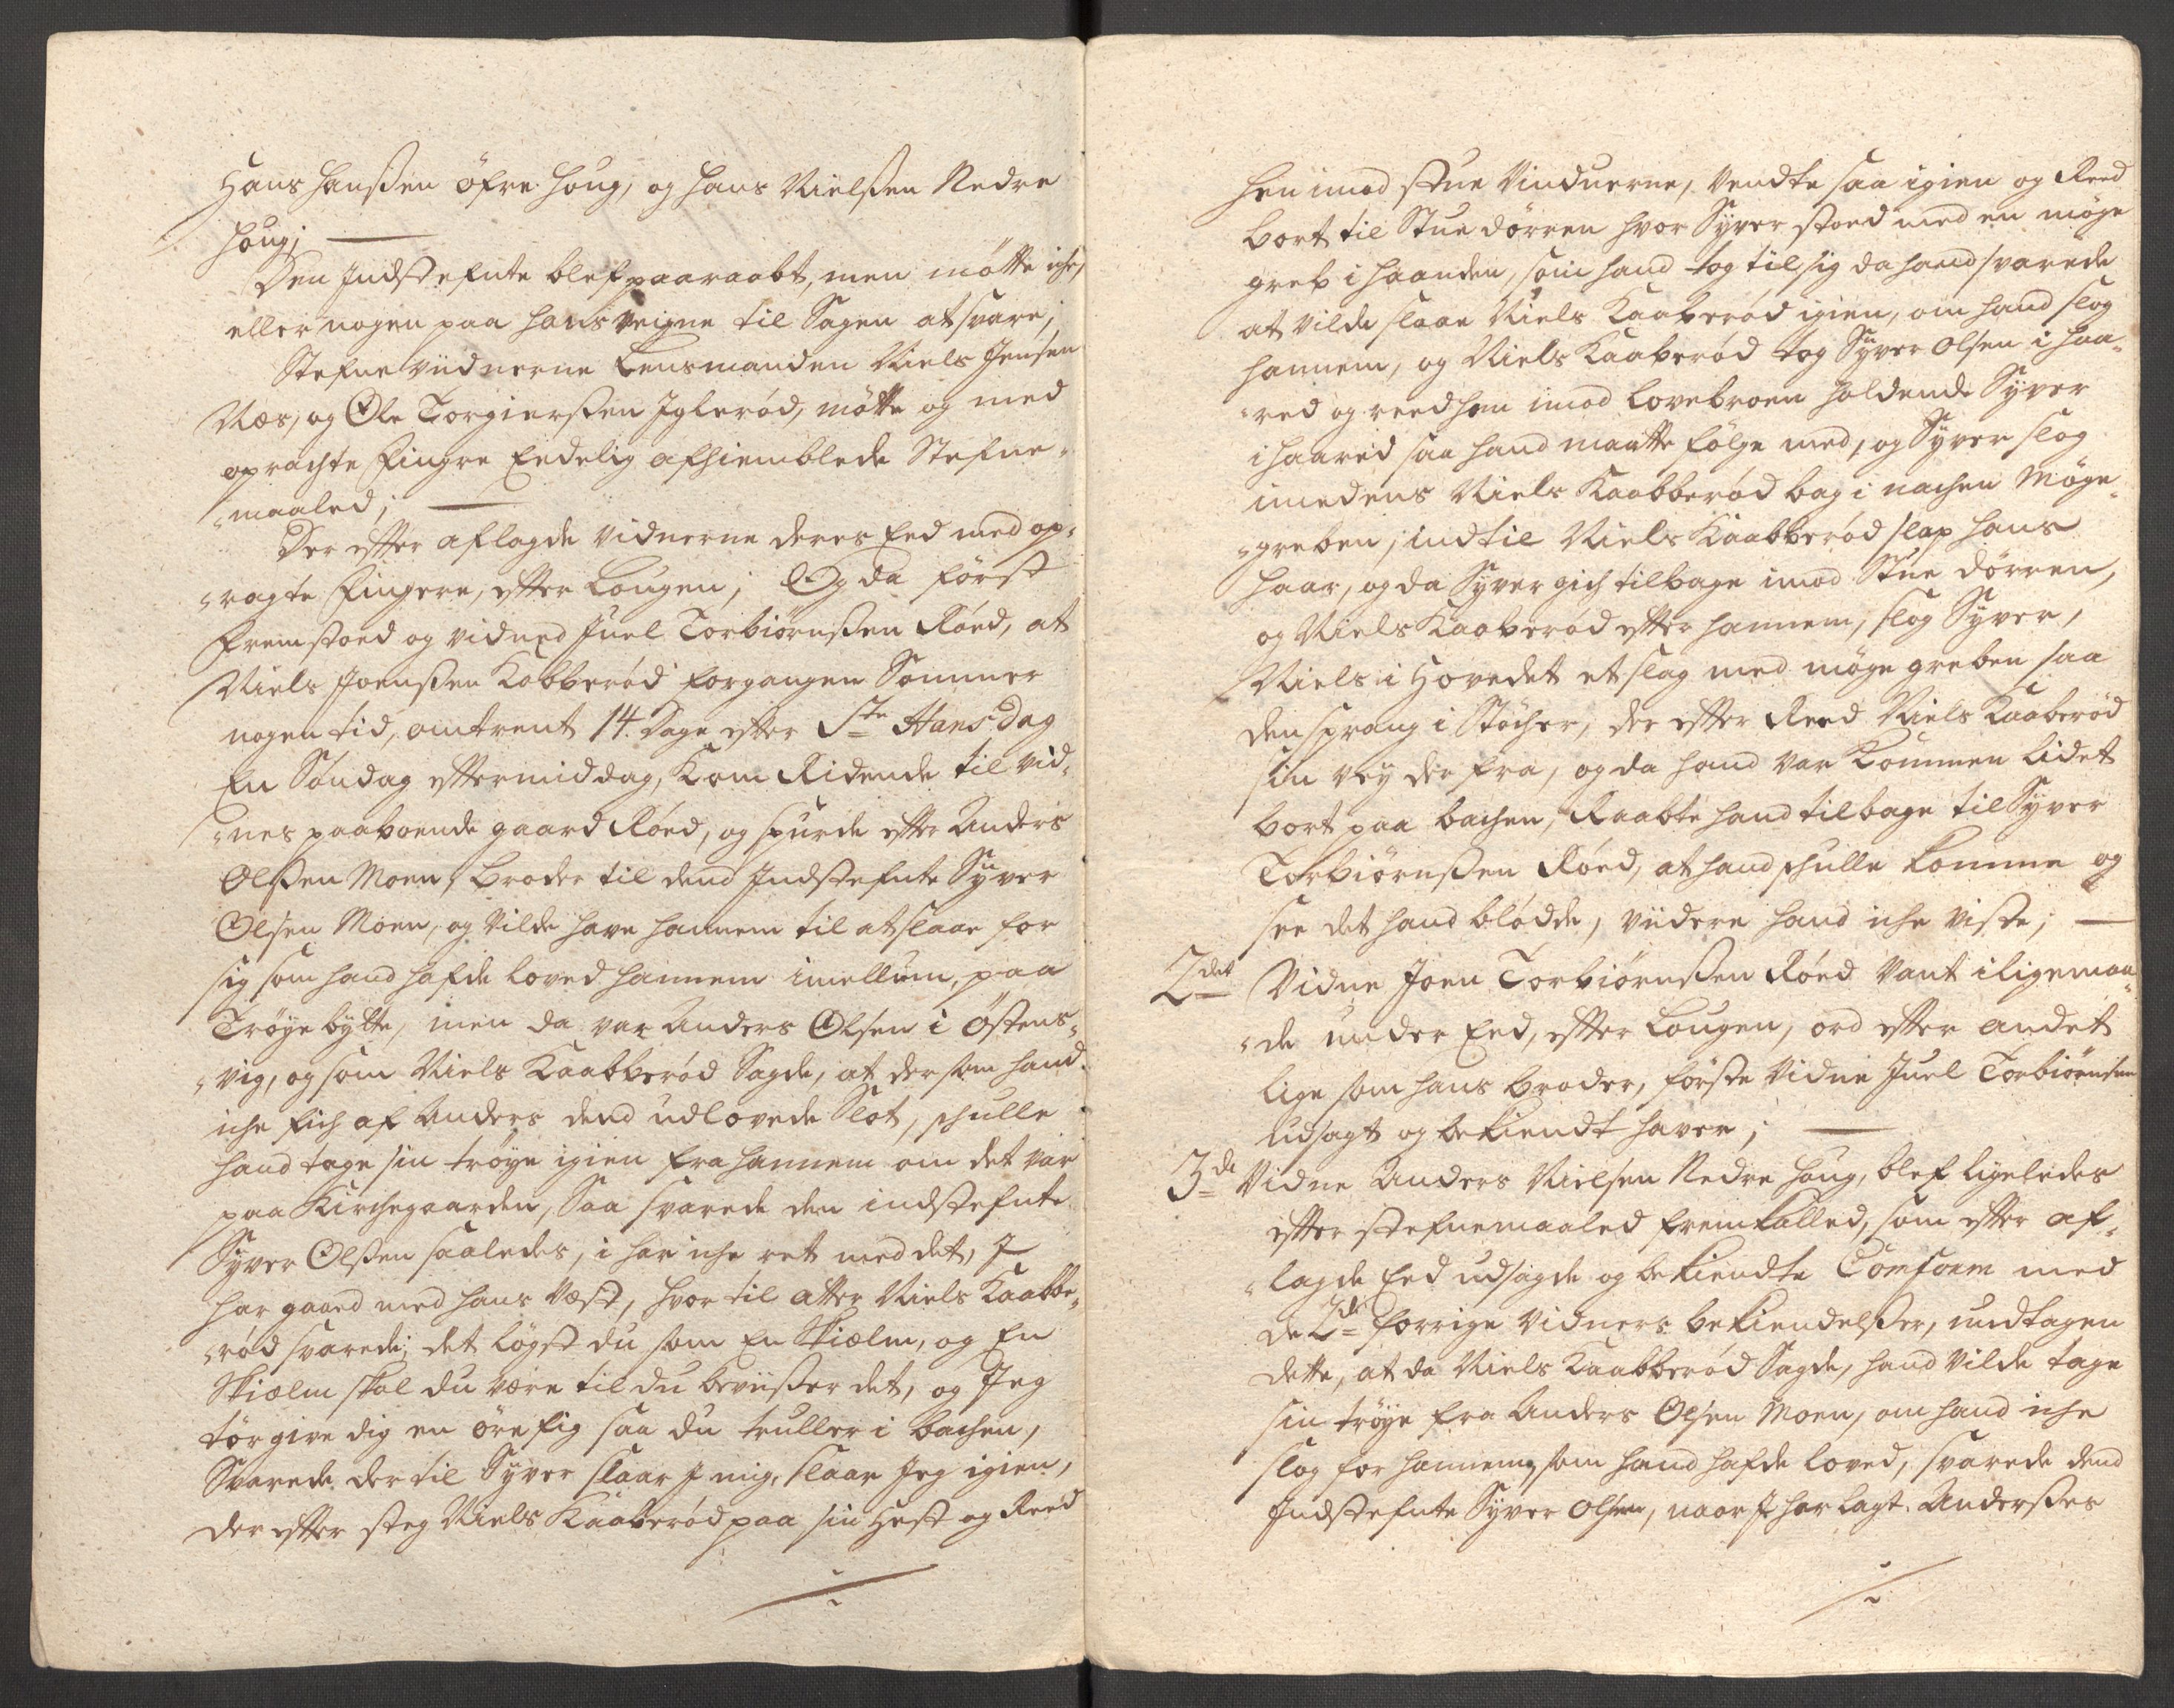 Hans Hansßen öfre Houg, og Hans Nielsßen Nedre
Houg;
Den Indstefnte blef paaraabt, men mötte iche,
eller nogen paa hans veigne til Sagen at svare;
Stefne viidnerne Lensmanden Niels Jensen
Næs, og Ole Torgiersßen Iglerød, mötte og med
oprachte Fingre Eedelig afhiemblede Stefne-
maaled;
Der efter aflagde vidnerne deres Eed med op-
ragte Fingere, efter Lougen; Og da först
fremstoed og vidned Juel Torbiörnsßen Röed, at
Niels Joensßen Kabberöd forgangen Sommer
nogen tid, omtrent 14. Dage efter Ste Hans Dag
En Söndag eftermiddag, kom Ridende til vid-
nes paaboende gaard Röed, og spurde efter Anders
Olsßen Moen, broder til dend Indstefnte Syver
Olsen Moen, og vilde have hannem til at slaae for
sig som hand hafde loved hannem imellum, paa
Tröye bytte, men da var Anders Olsen i Östens-
vig, og som Niels Kaabberöd Sagde, at dersom hand
iche fich af Anders dend udlovede Slot, schulle
hand tage sin tröye igien fra hannem om det var
paa Kirchegaarden, Saa svarede den indstefnte
Syver Olsßen saaledes, i har iche ret med det, I
har gaaed med hans Væst, hvor til atter Niels Kaabbe-
röd svarede; det lögst du som En Skiælm, og En
Skiælm skal du være til du beviisßer det, og Jeg
tör give dig en örefig saa du truller i bachen,
Svarede der til Syver slaar I mig, slaar Jeg igien,
der efter steg Niels Kaaberöd paa sin Hest og Reed
hen imod Stue Vinduerne, vendte saa igien og Reed
bort til Stue dörren hvor Syver stoed med en möge
greb i haanden, som hand tog til sig da hand svarede
at vilde slaae Niels Kaaberöd igien, om hand slog
hannem, og Niels Kaaberöd tog Syver Olsen i haa-
red og reed hen imod Lovebroen holdende Syver
i haared saa hand maatte fölge med, og Syver slog
imedens Niels Kaabberöd bag i nachen Möge-
greben, indtil Niels Kaabberöd slap hans
haar, og da Syver gich tilbage imod Stue dörren,
og Niels Kaaberöd efter hannem, slog Syver,
Niels i Hovedet et slag med möge greben saa
den sprang i Stöcher, der efter Reed Niels Kaaberöd
sin vey der fra, og da hand var kommen lidet
bort paa bachen, Raabte hand tilbage til Syver
Torbiörnsßen Röed, at hand schulle komme og
see det hand blödde, viidere hand iche viste;
2det Vidne Joen Torbiörnsßen Röed Vant iligemaa-
de under Eed, efter Lougen, ord efter andet
lige som hans broder, förste Vidne Juel Torbiörnsen
udsagt og bekiendt haver;
3de Vidne Anders Nielsen Nedre Houg, blef ligeledes
efter stefnemaaled fremkalled, som efter af-
lagde Eed udsagde og bekiendte Comform med
de 2de forrige vidners bekiendelsßer, undtagen
dette, at da Niels Kaabberöd Sagde, hand vilde tage
sin tröye fra Anders Olsen Moen, om hand iche
slog for hannem, som hand hafde loved, svarede dend
Indstefnte Syver Olsen, naar I har lagt Andersßes